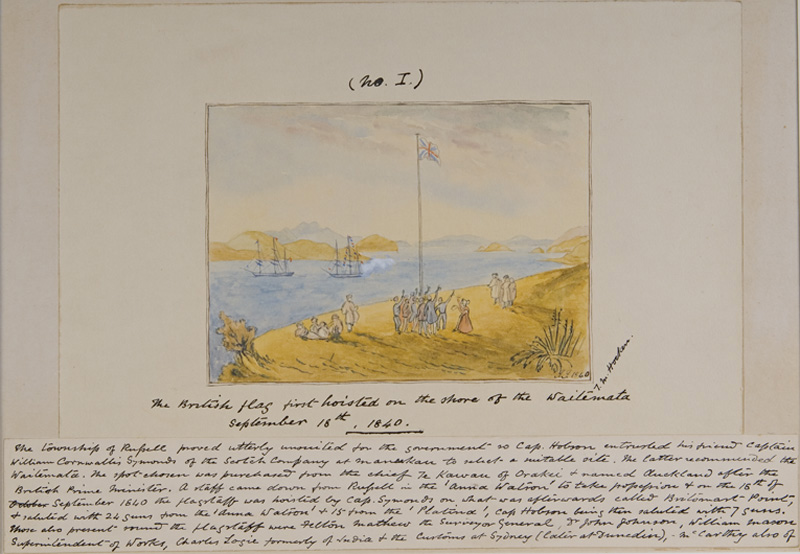 (No. I.)
1840
T. M. Hocken.
The British flag first hoisted on the shore of the Waitēmata
September 18th, 1840.
The township of Russell proved utterly unsuited for the government so Cap. Hobson entrusted his friend Captain
William Cornwallis Symonds of the Scotch Company at Manukau to select a suitable site. The latter recommended the
Waitēmata. The spot chosen was purchased from the chief Te Kawau of Orakei & named Auckland after the
British Prime Minister. A staff came down from Russell in the 'Anna Watson' to take possession & on the 18th of
October September 1840 the flagstaff was hoisted by Cap. Symonds on what was afterwards called Britomart Point,
& saluted with 24 guns from the 'Anna Watson' & 15 from the 'Platina', Cap Hobson being then saluted with 7 guns.
Those also present round the flagstaff were Felton Mathew the Surveyor General, Dr John Johnson, William Mason
Superintendent of Works, Charles Logie formerly of India & the Customs at Sydney (later at Dunedin), McCarthy also of